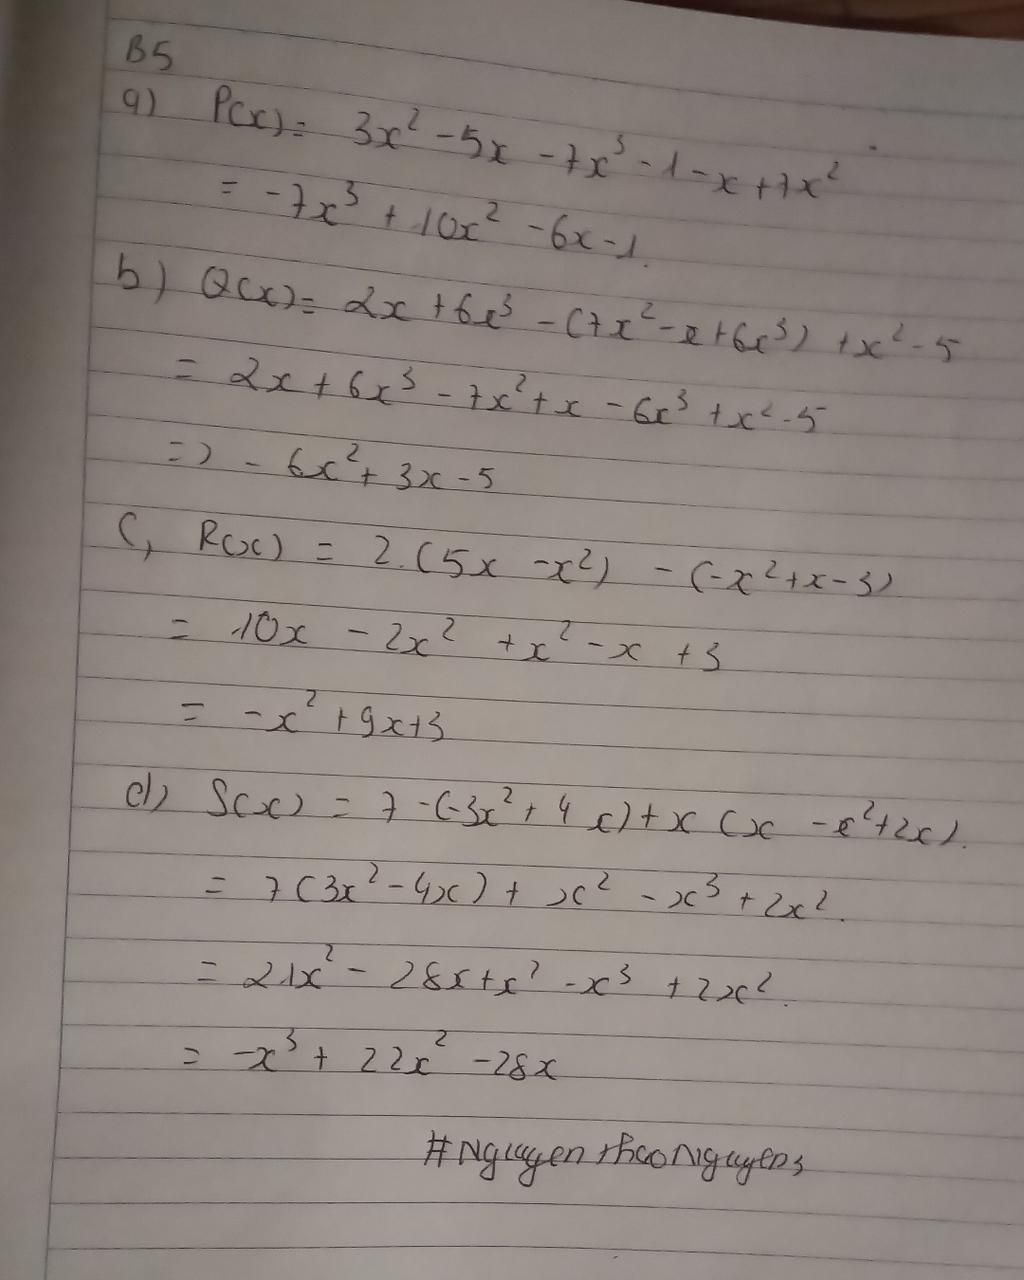 B5
a) P(x) = 3x² - 5x - 7x³ - 1 - x + 7x²
= -7x³ + 10x² - 6x - 1.
b) Q(x) = 2x + 6x³ - (7x² - x + 6x³) + x² - 5
= 2x + 6x³ - 7x² + x - 6x³ + x² - 5
=> - 6x² + 3x - 5
C, R(x) = 2.(5x - x²) - (-x² + x - 3)
= 10x - 2x² + x² - x + 3
= -x² + 9x + 3
d) S(x) = 7 - (-3x² + 4x) + x (x - x² + 2x).
= 7 (3x² - 4x) + x² - x³ + 2x².
= 21x² - 28x + x² - x³ + 2x².
= -x³ + 22x² - 28x